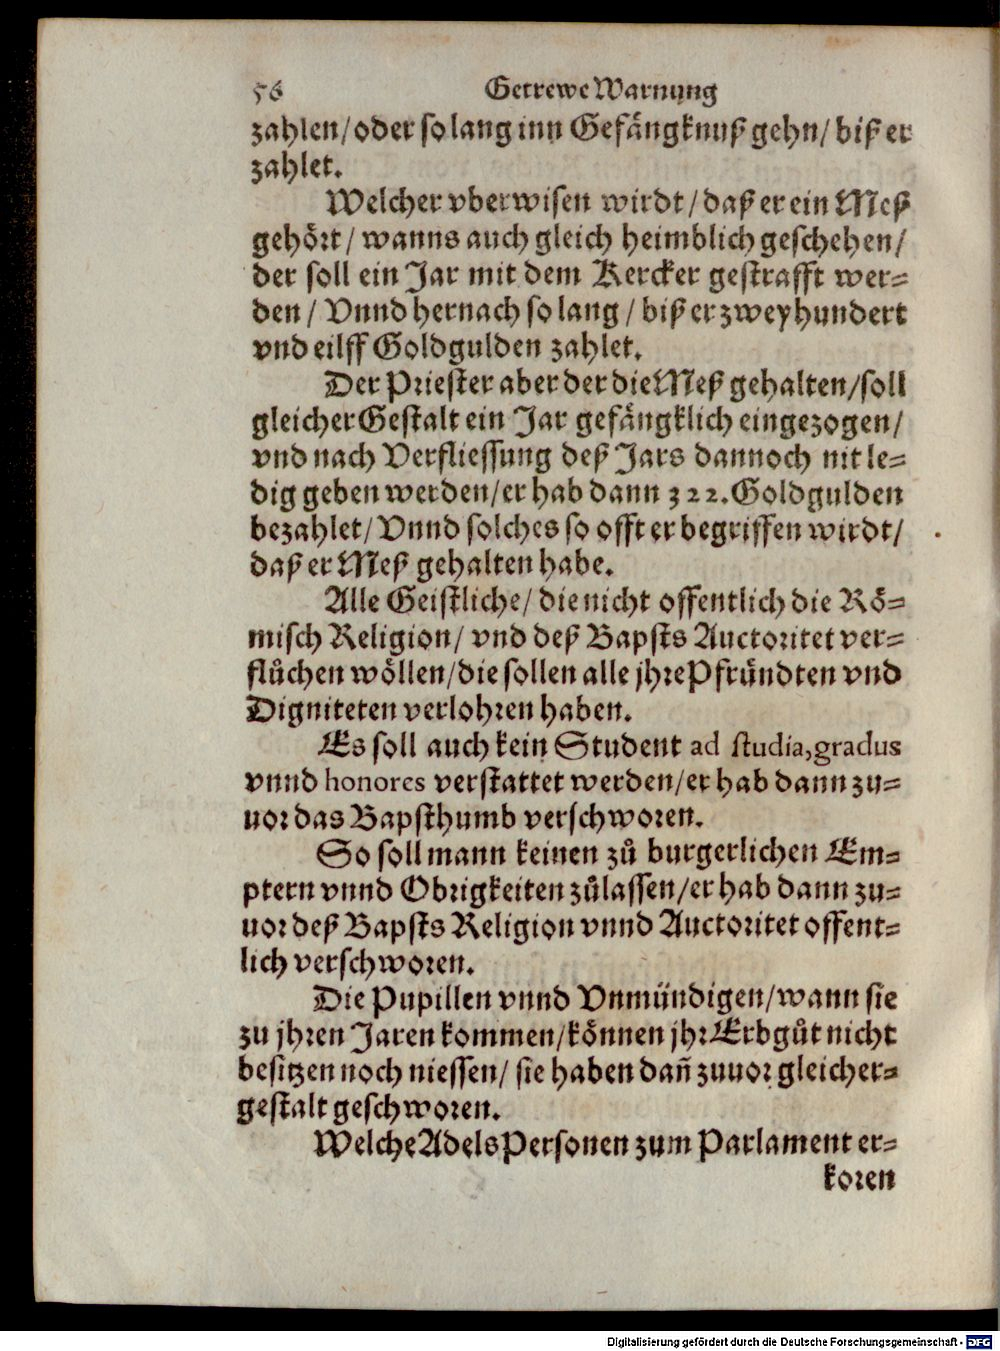 56 Getrewe Warnung
zahlen/ oder so lang inn Gefängknuß gehn/ biß er
zahlet.
Welcher vberwisen wirdt/ daß er ein Meß
gehört/ wanns auch gleich heimblich geschehen/
der soll ein Jar mit dem Kercker gestrafft wer-
den/ Vnnd hernach so lang/ biß er zweyhundert
vnd eilff Goldgulden zahlet.
Der Priester aber der die Meß gehalten/ soll
gleicher Gestalt ein Jar gefängklich eingezogen/
vnd nach Verfliessung deß Jars dannoch nit le-
dig geben werden/ er hab dann 322. Goldgulden
bezahlet/ Vnnd solches so offt er begriffen wirdt/
daß er Meß gehalten habe.
Alle Geistliche/ die nicht offentlich die Rö-
misch Religion/ vnd deß Bapsts Auctoritet ver-
flůchen wöllen/ die sollen alle jhre Pfründten vnd
Digniteten verlohren haben.
Es soll auch kein Student ad studia, gradus
vnnd honores verstattet werden/ er hab dann zu-
uor das Bapsthumb verschworen.
So soll mann keinen zů burgerlichen Em-
ptern vnnd Obrigkeiten zůlassen/ er hab dann zu-
uor deß Bapsts Religion vnnd Auctoritet offent-
lich verschworen.
Die Pupillen vnnd Vnmündigen/ wann sie
zu jhren Jaren kommen/ können jhr Erbgůt nicht
besitzen noch niessen/ sie haben dañ zuuor gleicher-
gestalt geschworen.
Welche Adels Personen zum Parlament er-
koren
Digitalisierung gefördert durch die Deutsche Forschungsgemeinschaft - DFG